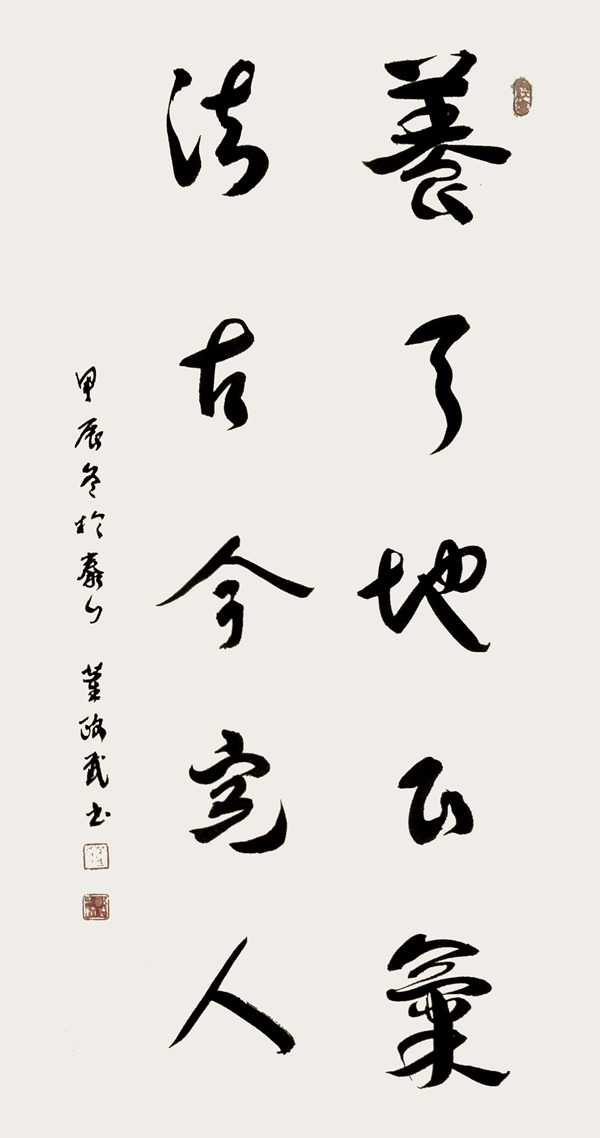 養天地正氣
法古今完人
甲辰冬於泰 董政武书